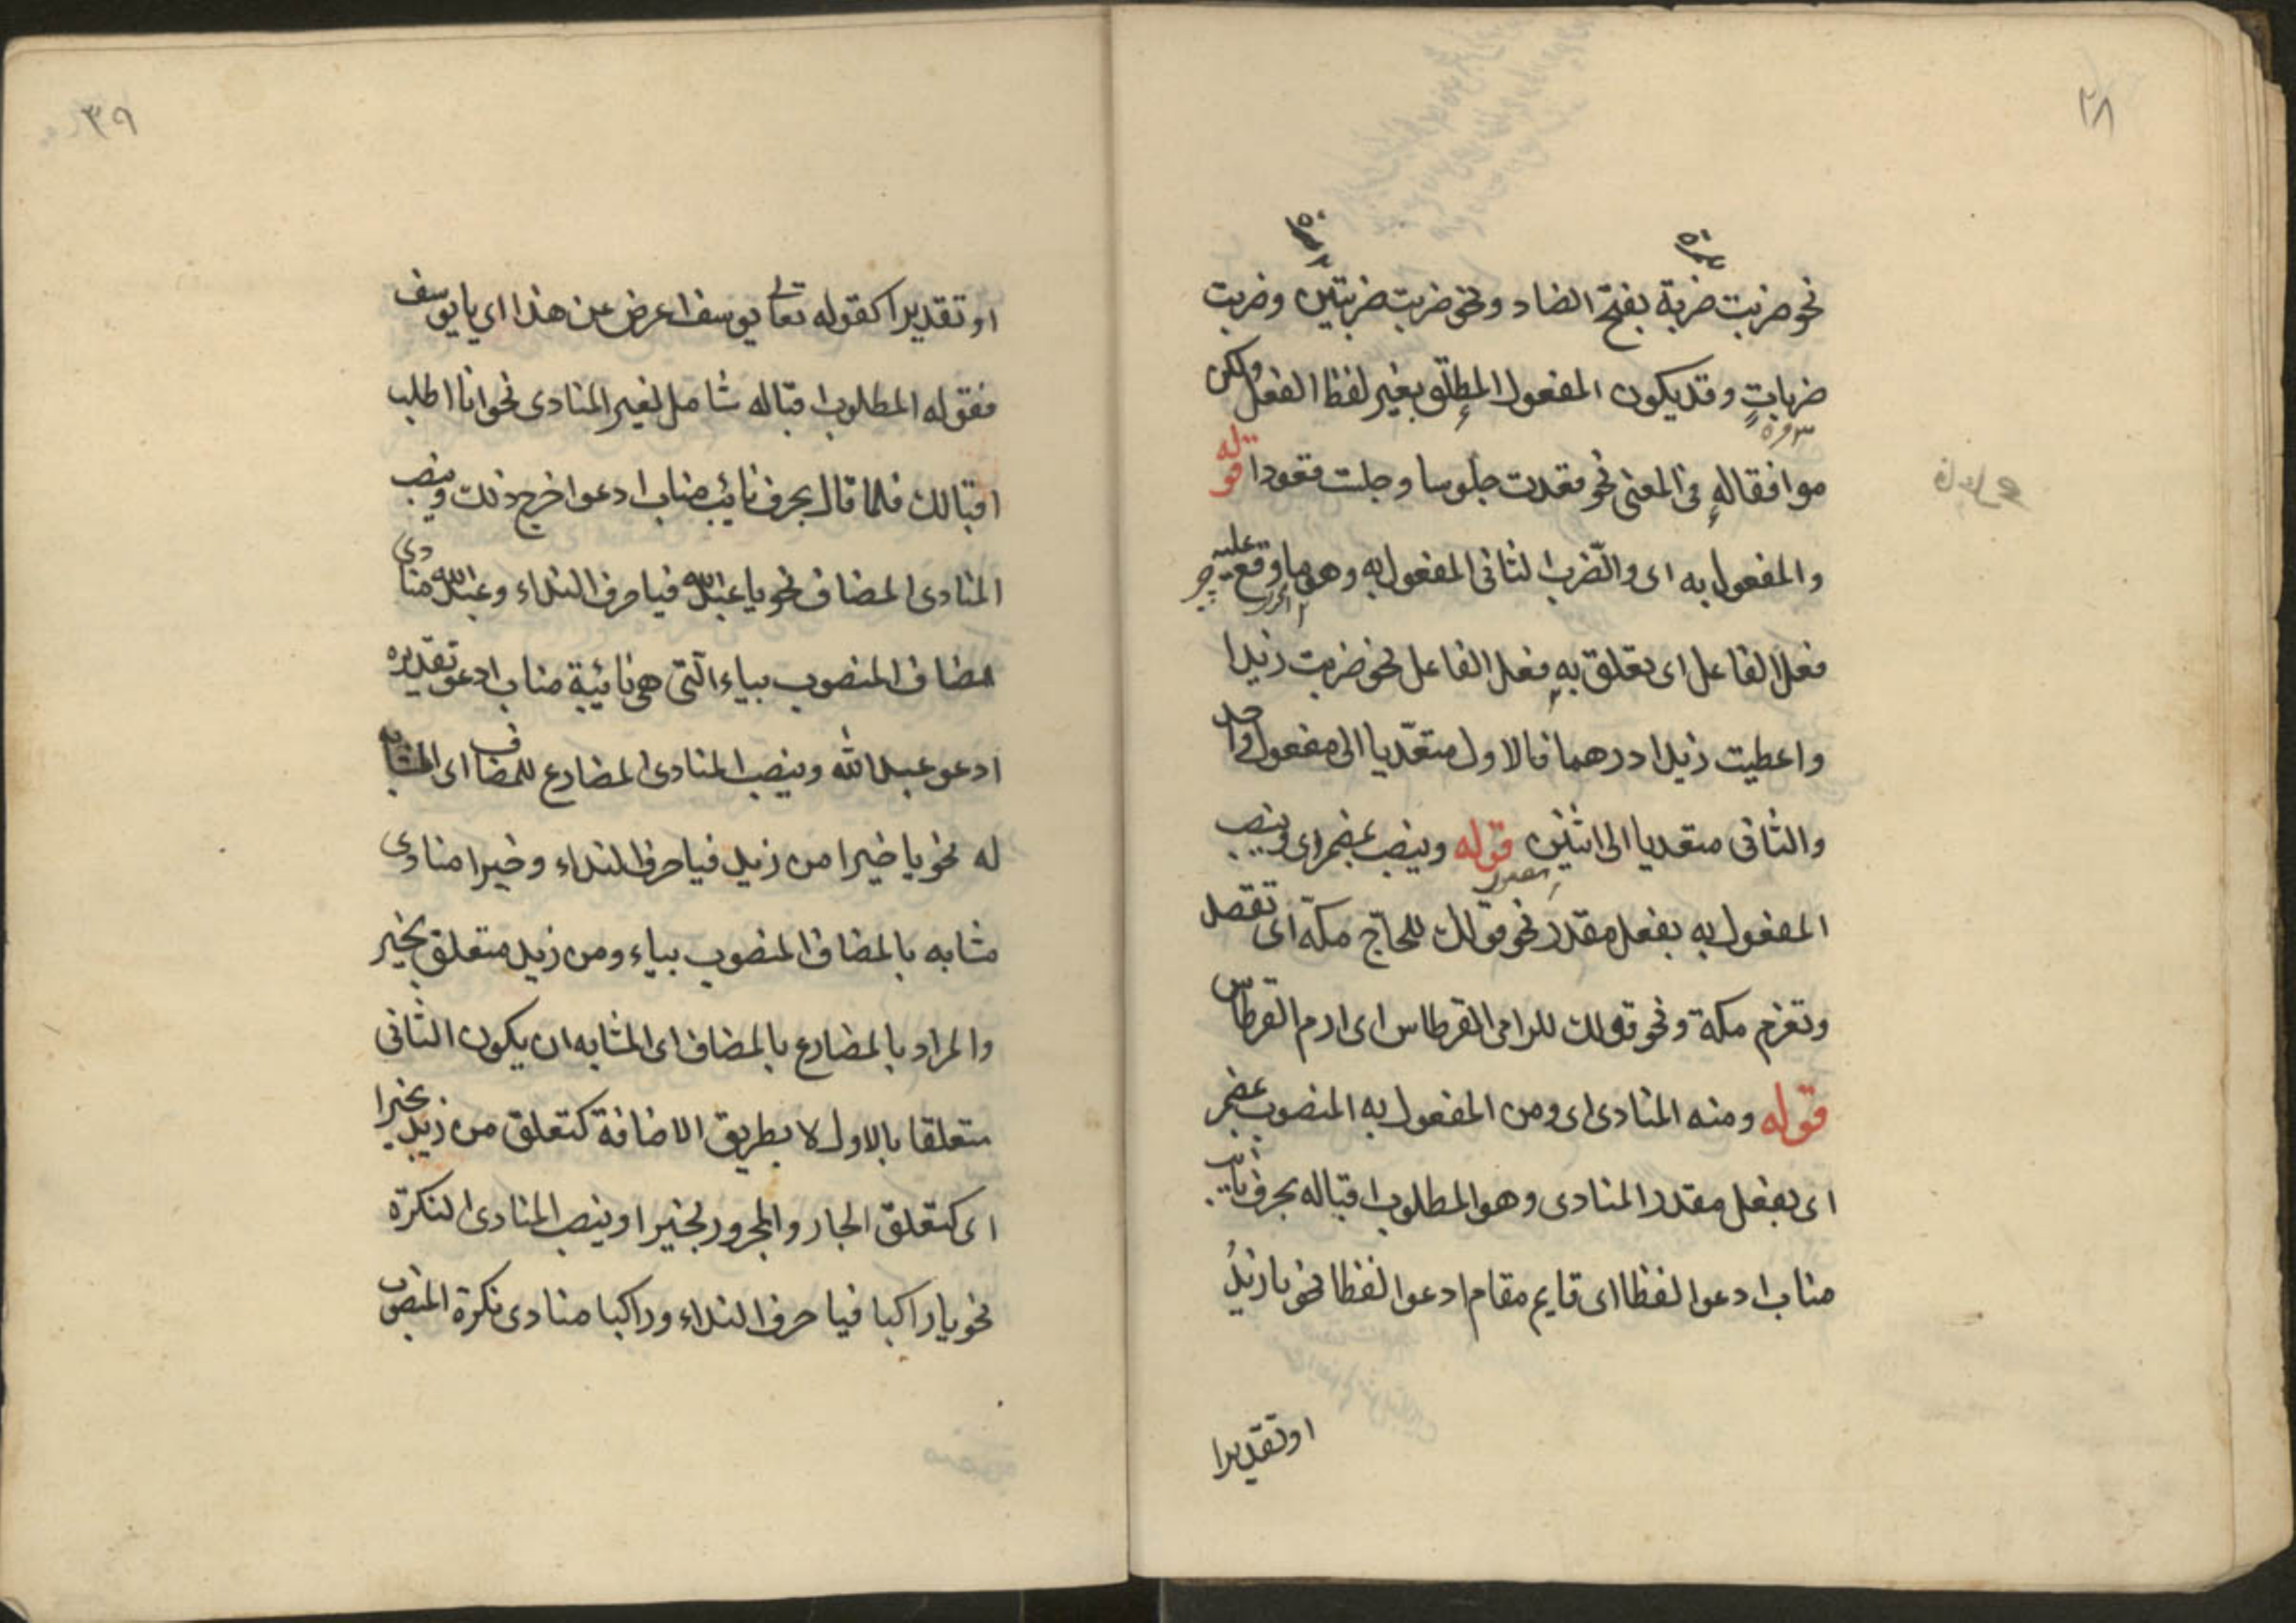 ٣٨
نحو ضربت ضربة بفتح الضاد ونحو ضربت ضربتين وضربت
ضربات وقد يكون المفعول المطلق بغير لفظ الفعل ولكن
موافقا له فى المعنى نحو قعدت جلوسا وجلت قعودا قوله
والمفعول به اى والضرب الثانى المفعول به وهو ما وقع عليه
فعل الفاعل اى تعلق به فعل الفاعل نحو ضربت زيدا
واعطيت زيدا درهما فالاول متعديا الى مفعول واحد
والثانى متعديا الى اثنين قوله وينصب بمضمر اى وينصب
المفعول به بفعل مقدر نحو قولك للحاج مكة اى تقصد
وتعزم مكة ونحو قولك للرامى القرطاس اى ارم القرطاس
قوله ومنه المنادى اى ومن المفعول به المنصوب بمضمر
اى بفعل مقدر المنادى وهو المطلوب اقباله بحرف نايب
مناب ادعوا لفظا اى قايم مقام ادعوا لفظا نحو يا زيدُ
او تقديرا
٣٩
او تقديرا كقوله تعالى يوسف اعرض عن هذا اى يا يوسف
فقوله المطلوب اقباله شامل لغير المنادى نحو انا اطلب
اقبالك فلما قال بحرف نايب مناب ادعوا خرج ذلك وينصب
المنادى المضاف نحو يا عبد الله فيا حرف النداء وعبد الله منادى
مضاف المنصوب بياء التى هى نائبة مناب ادعو تقديره
ادعو عبد الله وينصب المنادى المضارع للمضاف اى المشابه
له نحو يا خيرا من زيد فيا حرف النداء وخيرا منادى
مشابه بالمضاف المنصوب بياء ومن زيد متعلق بخير
والمراد بالمضارع بالمضاف اى المشابه ان يكون الثانى
متعلقا بالاول لا بطريق الاضافة كتعلق من زيد بخيرا
اى كتعلق الجار والمجرور لخيرا وينصب المنادى النكرة
نحو يا راكبا فيا حرف النداء وراكبا منادى نكرة المنصوب